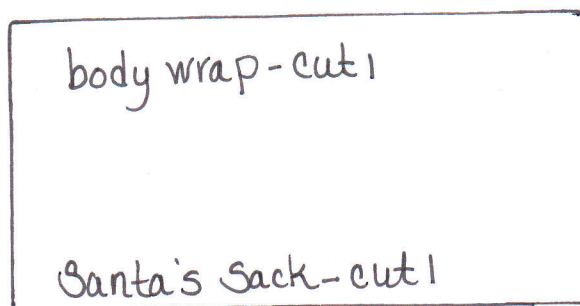 body wrap-cut 1
Santa's Sack-cut 1